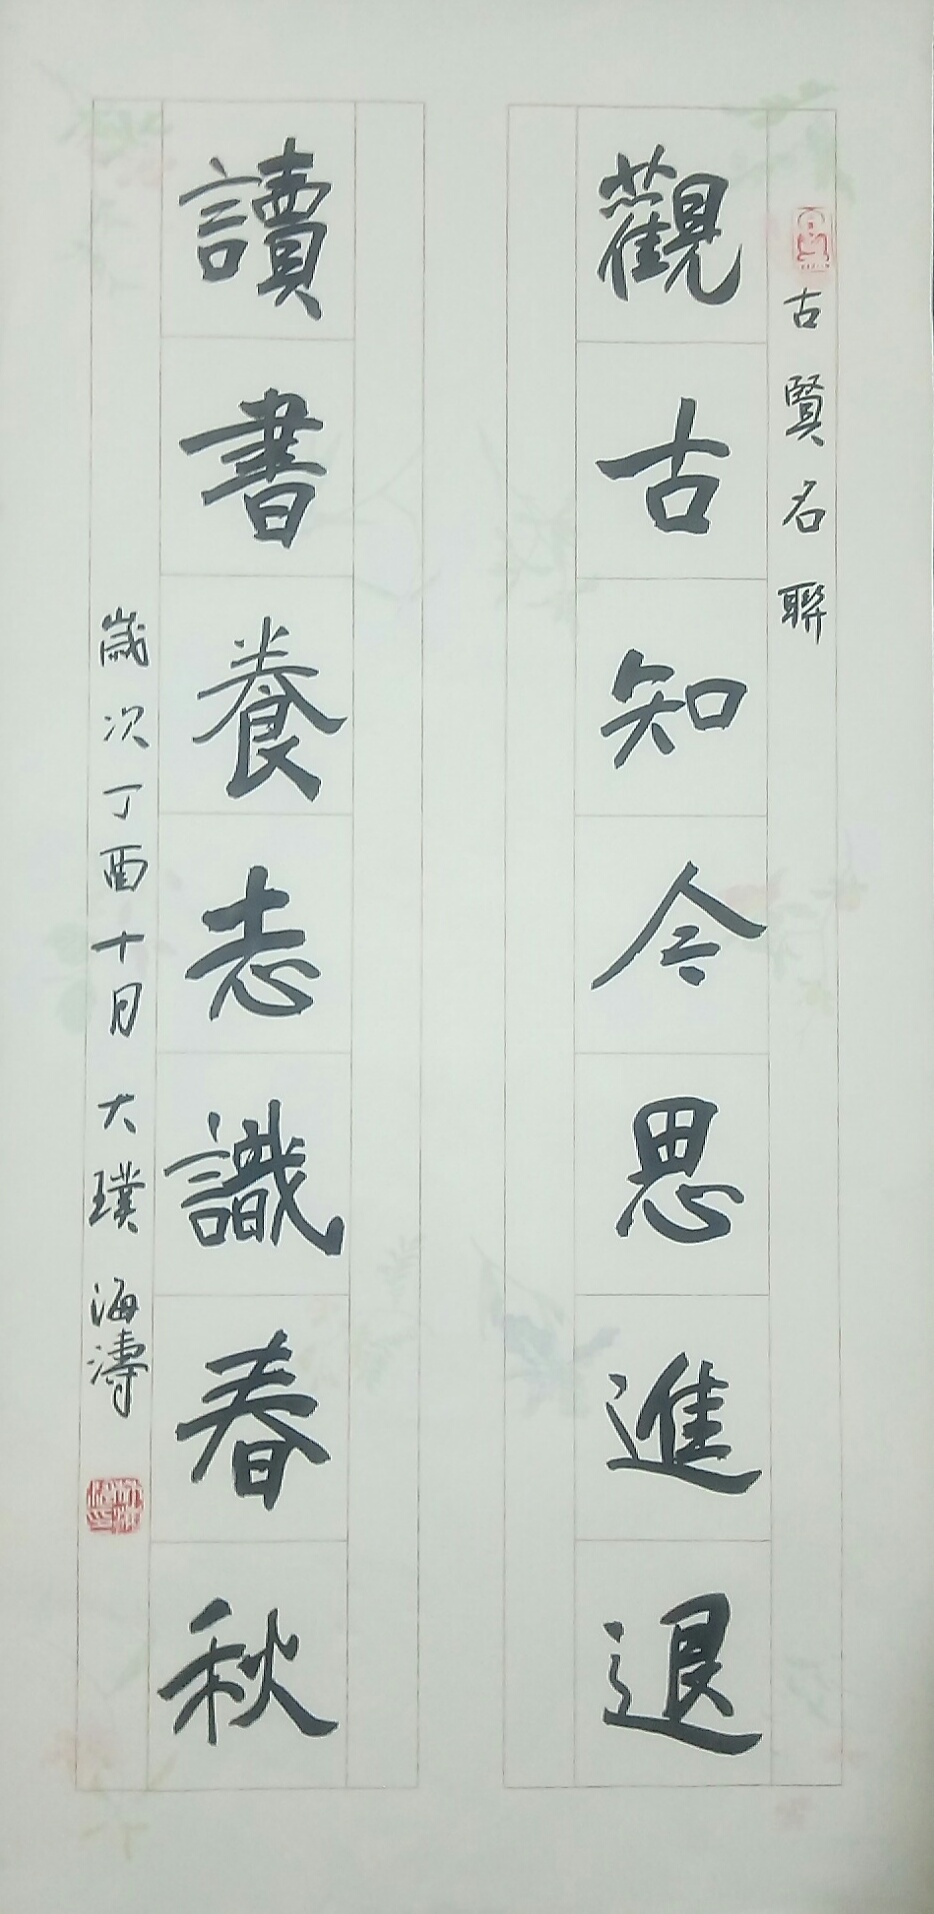 古賢名聯
觀古知今思進退
讀書養志識春秋
歲次丁酉十月大璞海濤